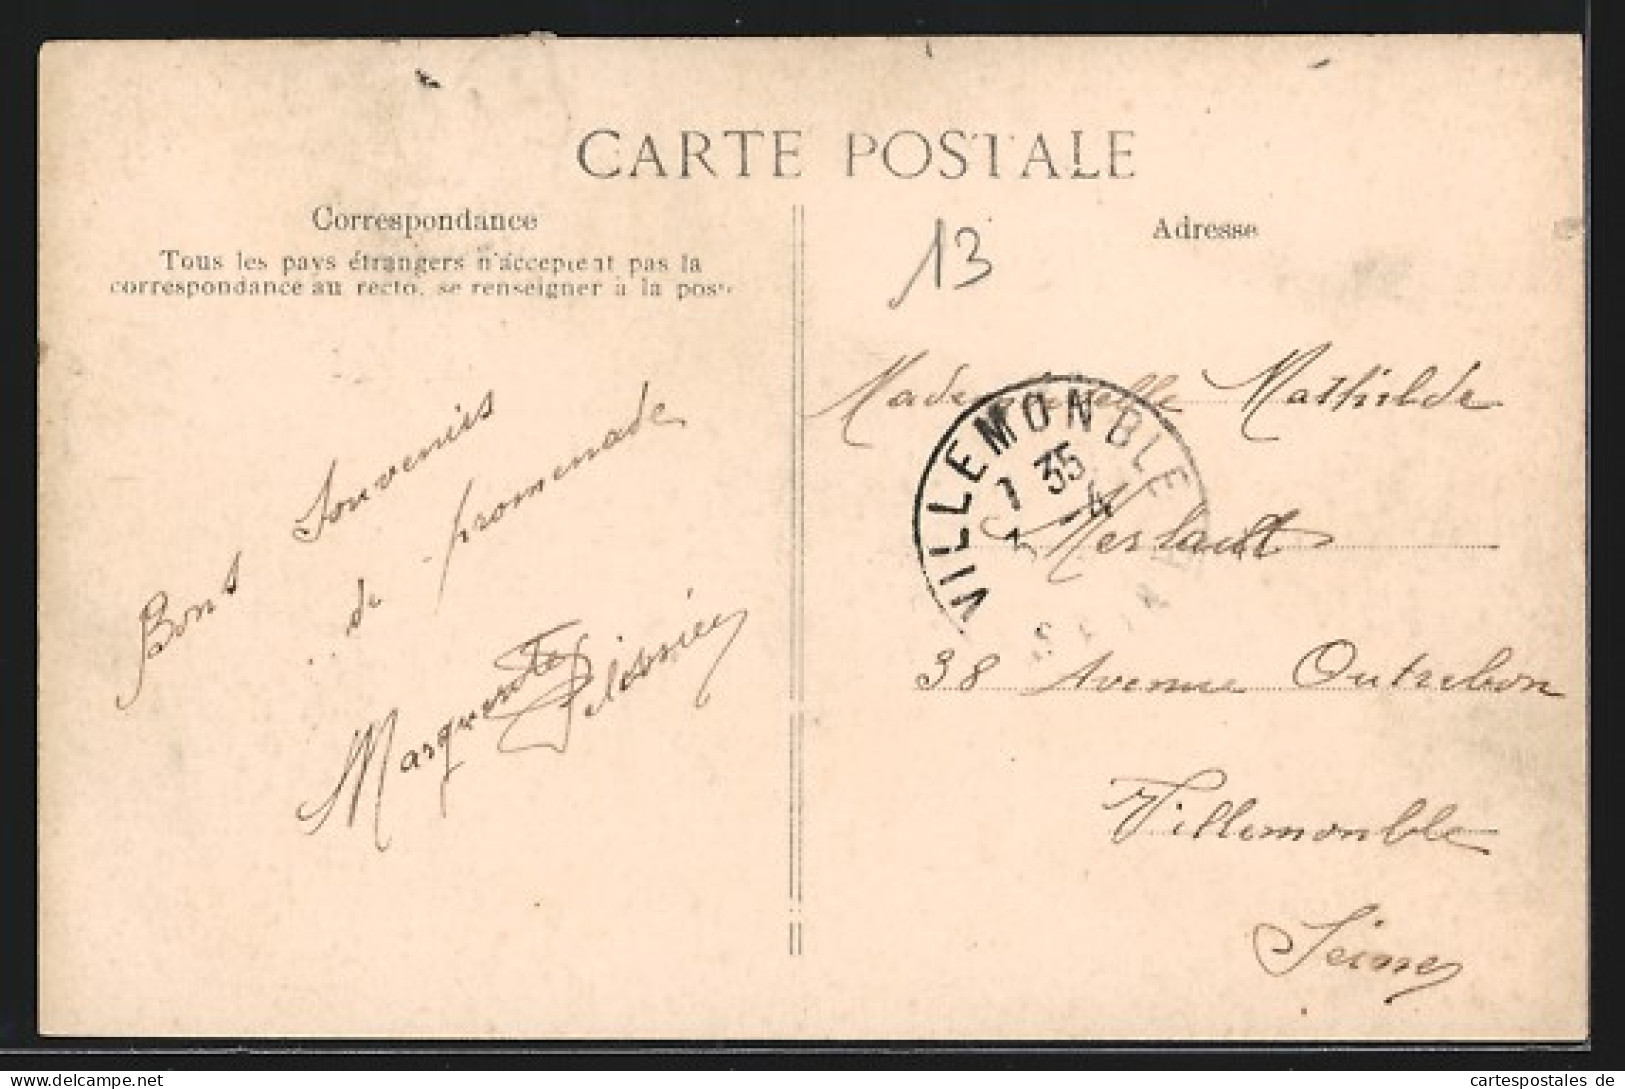 CARTE POSTALE
Correspondance
Tous les pays étrangers n'acceptent pas la
correspondance au recto, se renseigner à la poste
Bons Souvenirs
de promenade
Marguerite
Adresse
13
Mademoiselle Mathilde
38 Avenue Outrebon
Villemonble
Seine
VILLEMONBLE
7 35
-4
SEINE
cartespostales de